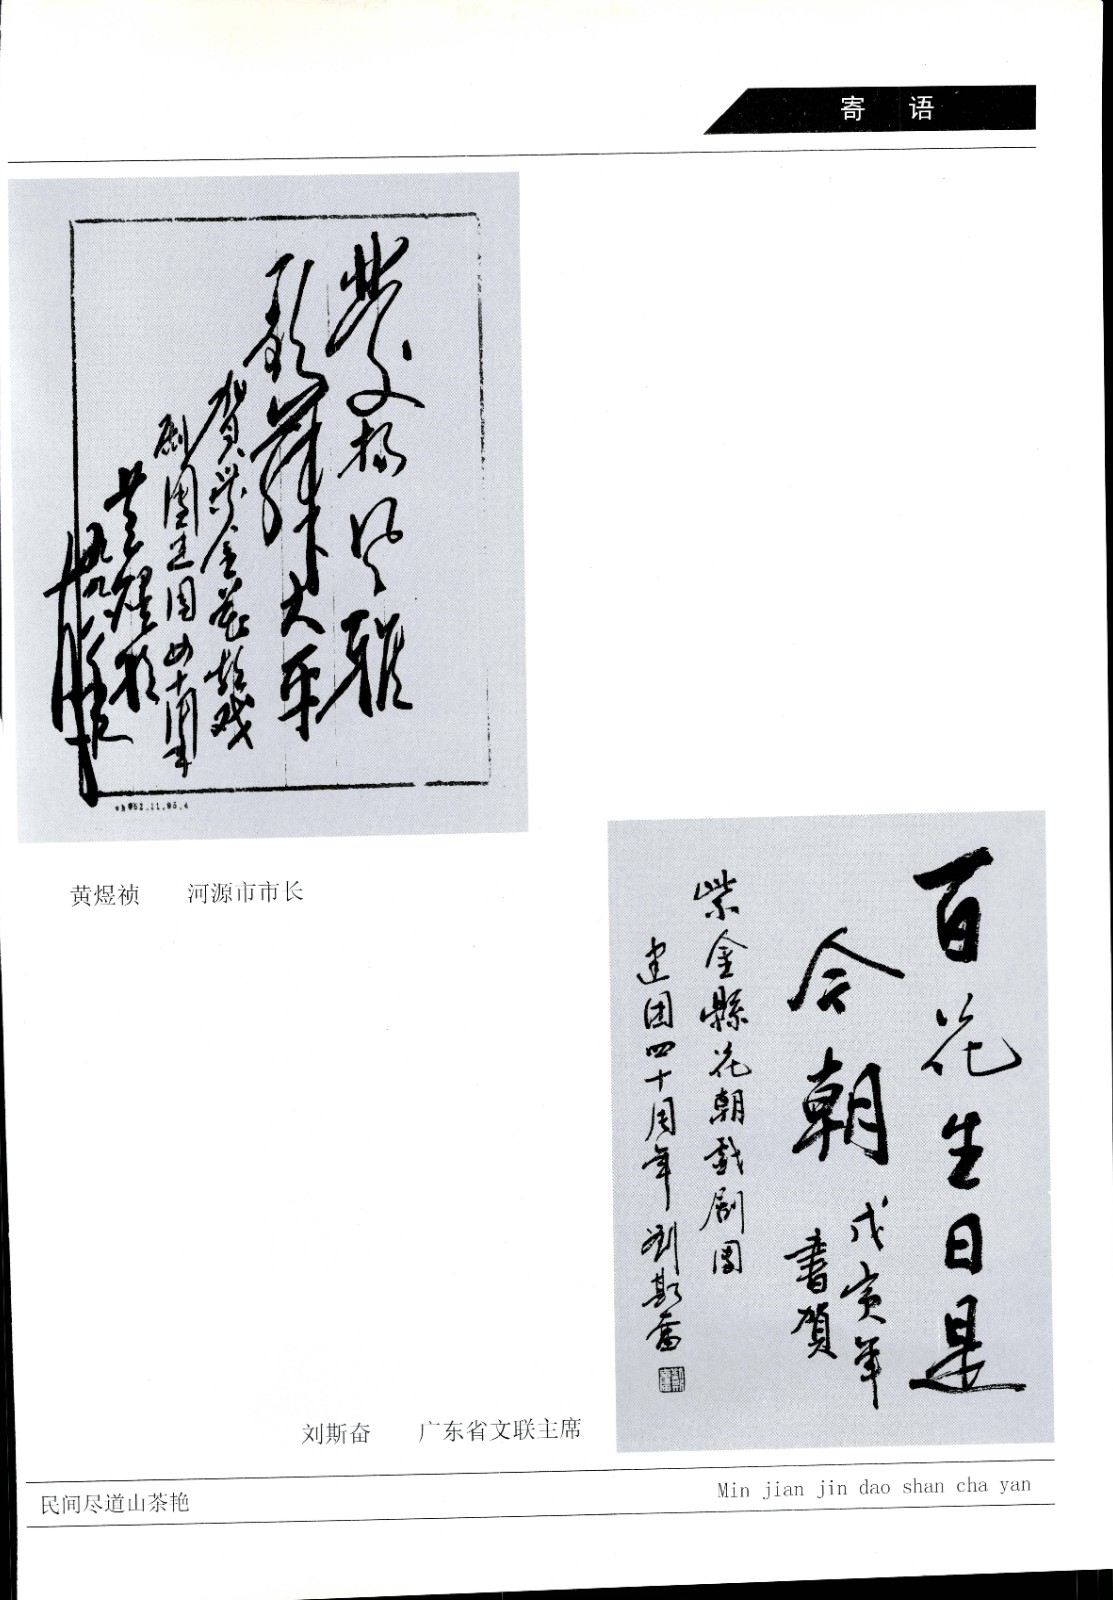 寄 语
紫文扬风雅
歌舞太平
贺紫金花朝戏
剧团建团四十周年
黄煜祯
黄煜祯 河源市市长
百花生日是
今朝
戊寅年
書賀
紫金縣花朝戲劇團
建团四十周年 劉斯奮
刘斯奋 广东省文联主席
民间尽道山茶艳
Min jian jin dao shan cha yan